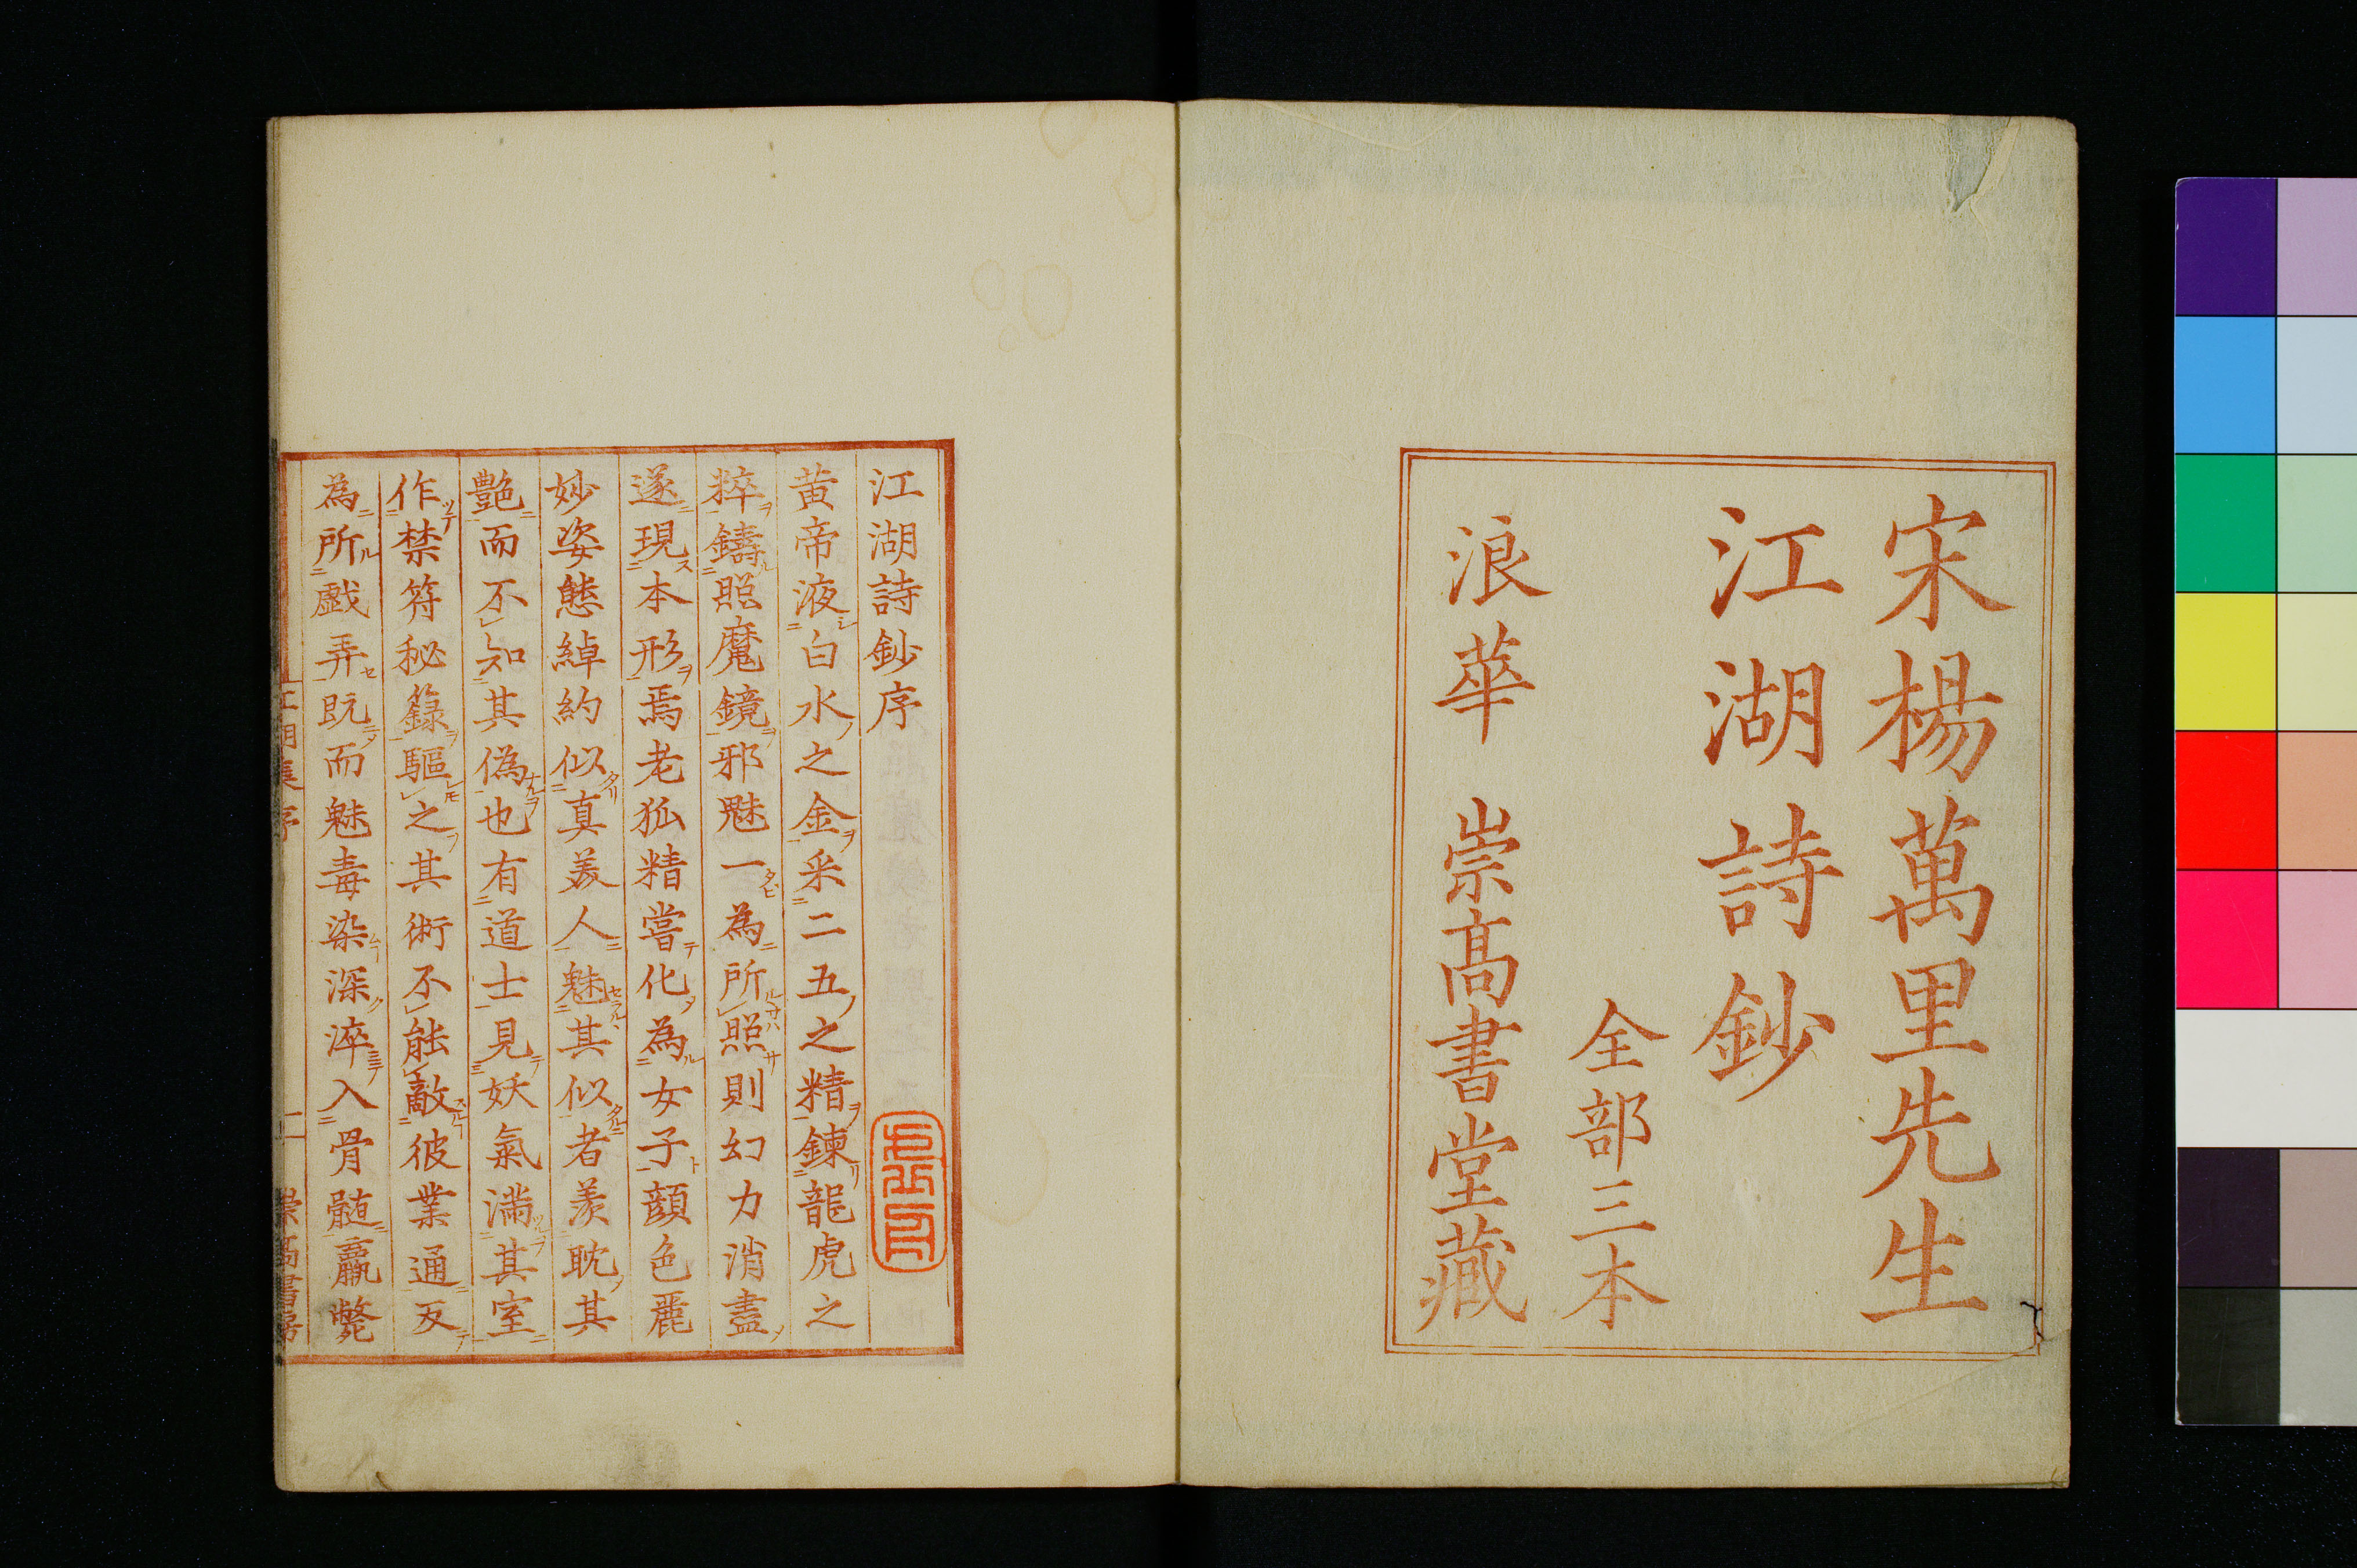 宋楊萬里先生
江湖詩鈔
全部三本
浪華 崇高書堂藏
江湖詩鈔序
黄帝液白水之金采二五之精鍊龍虎之
粹鑄照魔鏡邪魅一為所照則幻力消盡
遂現本形焉老狐精嘗化為女子顔色麗
妙姿態綽約似真美人魅其似者羨耽其
艶而不知其偽也有道士見妖氣滿其室
作禁符秘籙驅之其術不能敵彼業通反
為所戲弄既而魅毒染深淬入骨髄羸斃